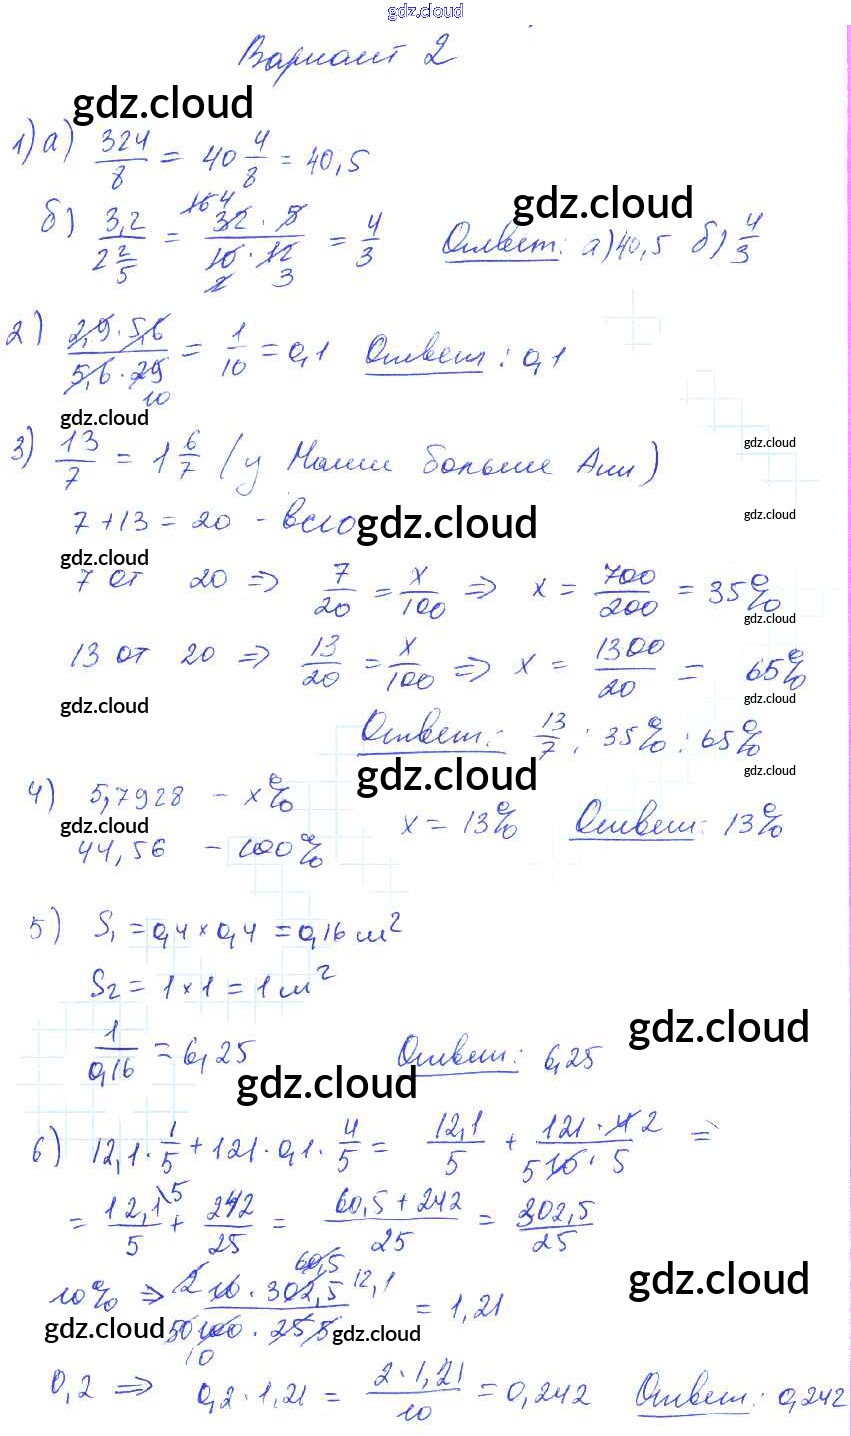 gdz.cloud
Вариант 2
gdz.cloud
1) а) 324/8 = 40 4/8 = 40,5
gdz.cloud
б) 3,2/(2 2/5) = (32 · 5)/(10 · 12) = 4/3 Ответ: а) 40,5 б) 4/3
2) (2,9 · 5,6)/(5,6 · 29) = 1/10 = 0,1 Ответ: 0,1
gdz.cloud
3) 13/7 = 1 6/7 (у Маши больше Ани)
gdz.cloud
7 + 13 = 20 - всего
gdz.cloud
gdz.cloud
gdz.cloud
7 от 20 ⇒ 7/20 = x/100 ⇒ x = 700/200 = 35%
gdz.cloud
13 от 20 ⇒ 13/20 = x/100 ⇒ x = 1300/20 = 65%
gdz.cloud
gdz.cloud
Ответ: 13/7; 35%; 65%
gdz.cloud
gdz.cloud
4) 5,7928 - x%
x = 13% Ответ: 13%
gdz.cloud
44,56 - 100%
5) S₁ = 0,4 × 0,4 = 0,16 м²
S₂ = 1 × 1 = 1 м²
gdz.cloud
1/0,16 = 6,25 Ответ: 6,25
gdz.cloud
6) 12,1 · 1/5 + 121 · 0,1 · 4/5 = 12,1/5 + (121 · 4 2)/(5 10 · 5) =
= 12,1\5/5 + 242/25 = (60,5 + 242)/25 = 302,5/25
gdz.cloud
10% ⇒ (10 · 302,5)/(100 · 25) = 1,21
gdz.cloud
gdz.cloud
0,2 ⇒ 0,2 · 1,21 = (2 · 1,21)/10 = 0,242 Ответ: 0,242